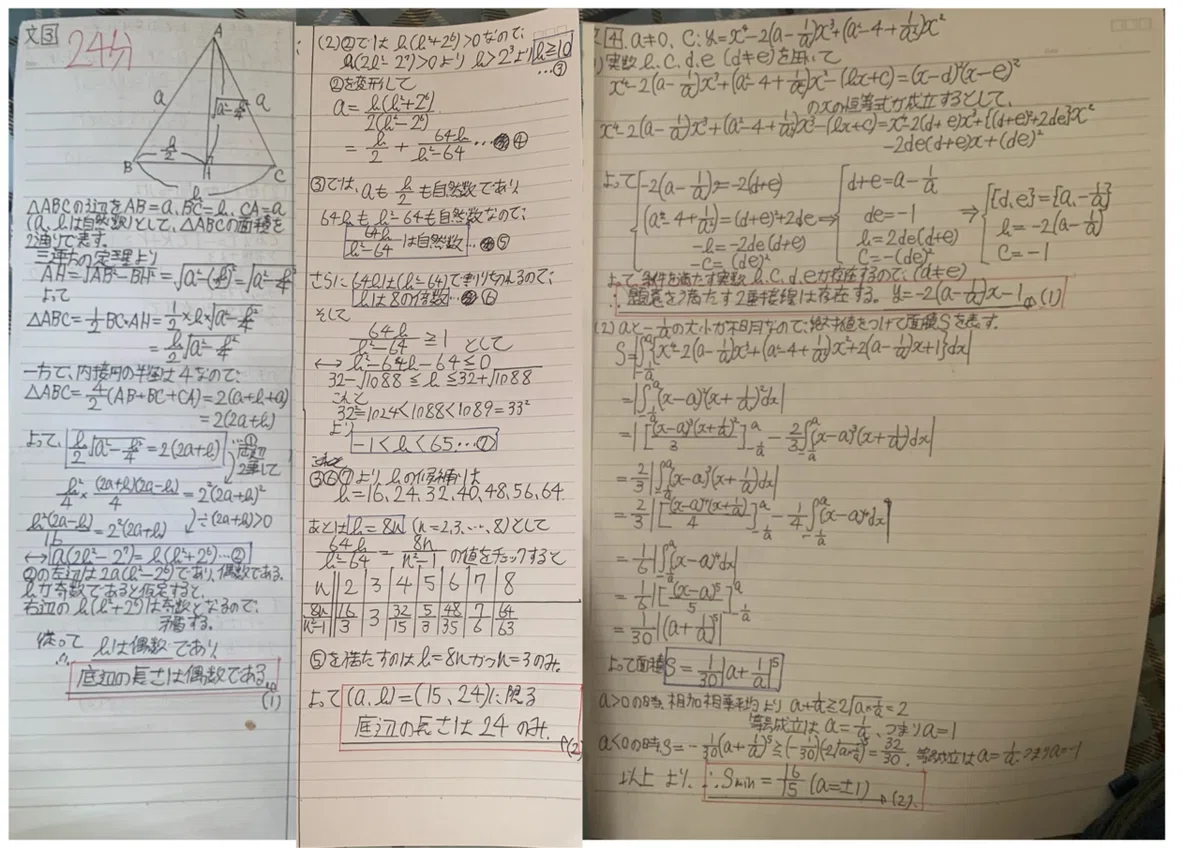 文3
24分
A
a
√a²-h²/4
a
h/2
B
H
C
h
△ABCの辺をAB=a, BC=h, CA=a
(a, hは自然数)として、△ABCの面積を
2通りで表す。
三平方の定理より
AH=√AB²-BH²=√a²-(h/2)²=√a²-h²/4
よって
△ABC=1/2 BC×AH=1/2×h×√a²-h²/4
=h/2√a²-h²/4
一方で、内接円の半径は4なので、
△ABC=4/2(AB+BC+CA)=2(a+h+a)
=2(2a+h)
よって、h/2√a²-h²/4=2(2a+h) …①
両辺2乗して
h²/4×(2a+h)(2a-h)/4=2²(2a+h)²
h²(2a-h)/16=2²(2a+h) ÷(2a+h)>0
↔a(2h²-2⁷)=h(h²+2⁶)…②
②の左辺は2a(h²-2⁶)であり、偶数である。
hが奇数であると仮定すると、
右辺のh(h²+2⁶)は奇数となるので、
矛盾する。
従って hは偶数であり
∴ 底辺の長さは偶数である。
(1)
(2)②ではh(h²+2⁶)>0なので、
a(2h²-2⁷)>0よりh>2³よりh≧10
…③
②を変形して
a=h(h²+2⁶)/2(h²-2⁶)
=h/2+64h/h²-64…④
③では、aもh/2も自然数であり
64hもh²-64も自然数なので、
64h/h²-64は自然数…⑤
さらに64hは(h²-64)で割りきれるので、
hは8の倍数…⑥
そして
64h/h²-64≧1として
↔h²-64h-64≦0
32-√1088≦h≦32+√1088
これと
32²=1024<1088<1089=33²
より
-1<h<65…⑦
③⑥⑦よりhの候補は
h=16, 24, 32, 40, 48, 56, 64.
あとはh=8n (n=2,3,…,8)として
64h/h²-64=8n/n²-1の値をチェックすると
n 2 3 4 5 6 7 8
8n/n²-1 16/3 3 32/15 5/3 48/35 7/6 64/63
⑤を満たすのはh=8nかつn=3のみ
よって(a,h)=(15,24)に限る
底辺の長さは24のみ.
(2)
4 a≠0, C:y=x⁴-2(a-1/a)x³+(a²-4+1/a²)x²
実数h,c,d,e (d≠e)を用いて
x⁴-2(a-1/a)x³+(a²-4+1/a²)x²-(hx+c)=(x-d)²(x-e)²
のxの恒等式が成立するとして、
x⁴-2(a-1/a)x³+(a²-4+1/a²)x²-(hx+c)=x⁴-2(d+e)x³+{(d+e)²+2de}x²
-2de(d+e)x+(de)²
よって -2(a-1/a)=-2(d+e)
(a²-4+1/a²)=(d+e)²+2de
-h=-2de(d+e)
-c=(de)²
⇒ d+e=a-1/a
de=-1
h=2de(d+e)
c=-(de)²
⇒ {d,e}={a,-1/a}
h=-2(a-1/a)
c=-1
よって、条件を満たす実数h,c,d,eが存在するので、(d≠e)
∴題意を満たす2重接線は存在する。y=-2(a-1/a)x-1 (1)
(2) aと-1/aの大小が不明なので、絶対値をつけて面積Sを表す。
S=|∫{x⁴-2(a-1/a)x³+(a²-4+1/a²)x²+2(a-1/a)x+1}dx|
=|∫(x-a)²(x+1/a)²dx|
=|[(x-a)³(x+1/a)²/3]-2/3∫(x-a)³(x+1/a)dx|
=2/3|∫(x-a)³(x+1/a)dx|
=2/3|[(x-a)⁴(x+1/a)/4]-1/4∫(x-a)⁴dx|
=1/6|∫(x-a)⁴dx|
=1/6|[(x-a)⁵/5]|
=1/30|(a+1/a)⁵|
よって面積S=1/30|a+1/a|⁵
a>0の時、相加相乗平均よりa+1/a≧2√a×1/a=2
等号成立はa=1/a、つまりa=1
a<0の時S=-1/30(a+1/a)⁵≧(-1/30)(2√a×1/a)⁵=32/30. 等号成立はa=1/aつまりa=-1
以上より、∴Smin=16/15 (a=±1)
(2).